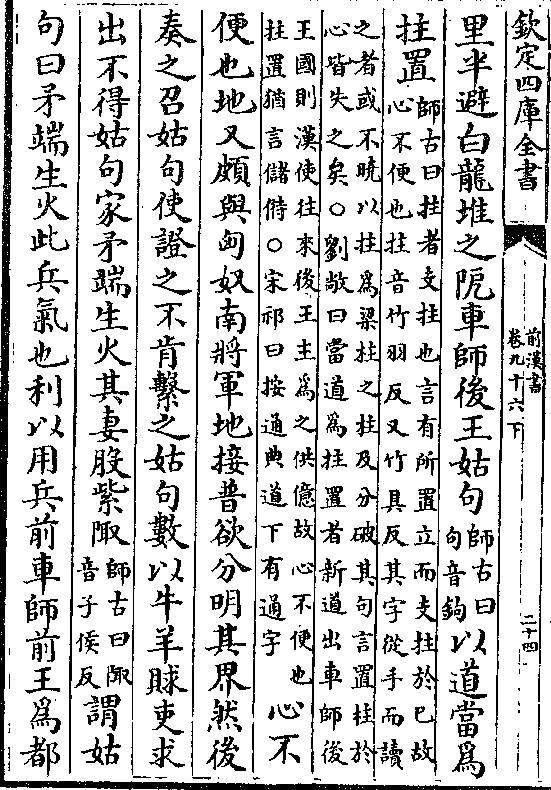 欽定四庫全書
前漢書
卷九十六下
二十四
里半避白龍堆之阸車師後王姑句師古曰句音鉤以道當爲
拄置師古曰拄者支拄也言有所置立而支拄於已故心不便也拄音竹羽反又竹具反其字從手而讀
之者或不曉以拄爲梁柱之柱及分破其句言置柱於心皆失之矣○劉敞曰當道爲拄置者新道出車師後
王國則漢使往來後王主爲之供億故心不便也拄置猶言儲偫○宋祁曰按通典道下有通字心不
便也地又頗與匈奴南將軍地接普欲分明其界然後
奏之召姑句使證之不肯繫之姑句數以牛羊賕吏求
出不得姑句家矛端生火其妻股紫陬師古曰陬音子侯反謂姑
句曰矛端生火此兵氣也利以用兵前車師前王爲都